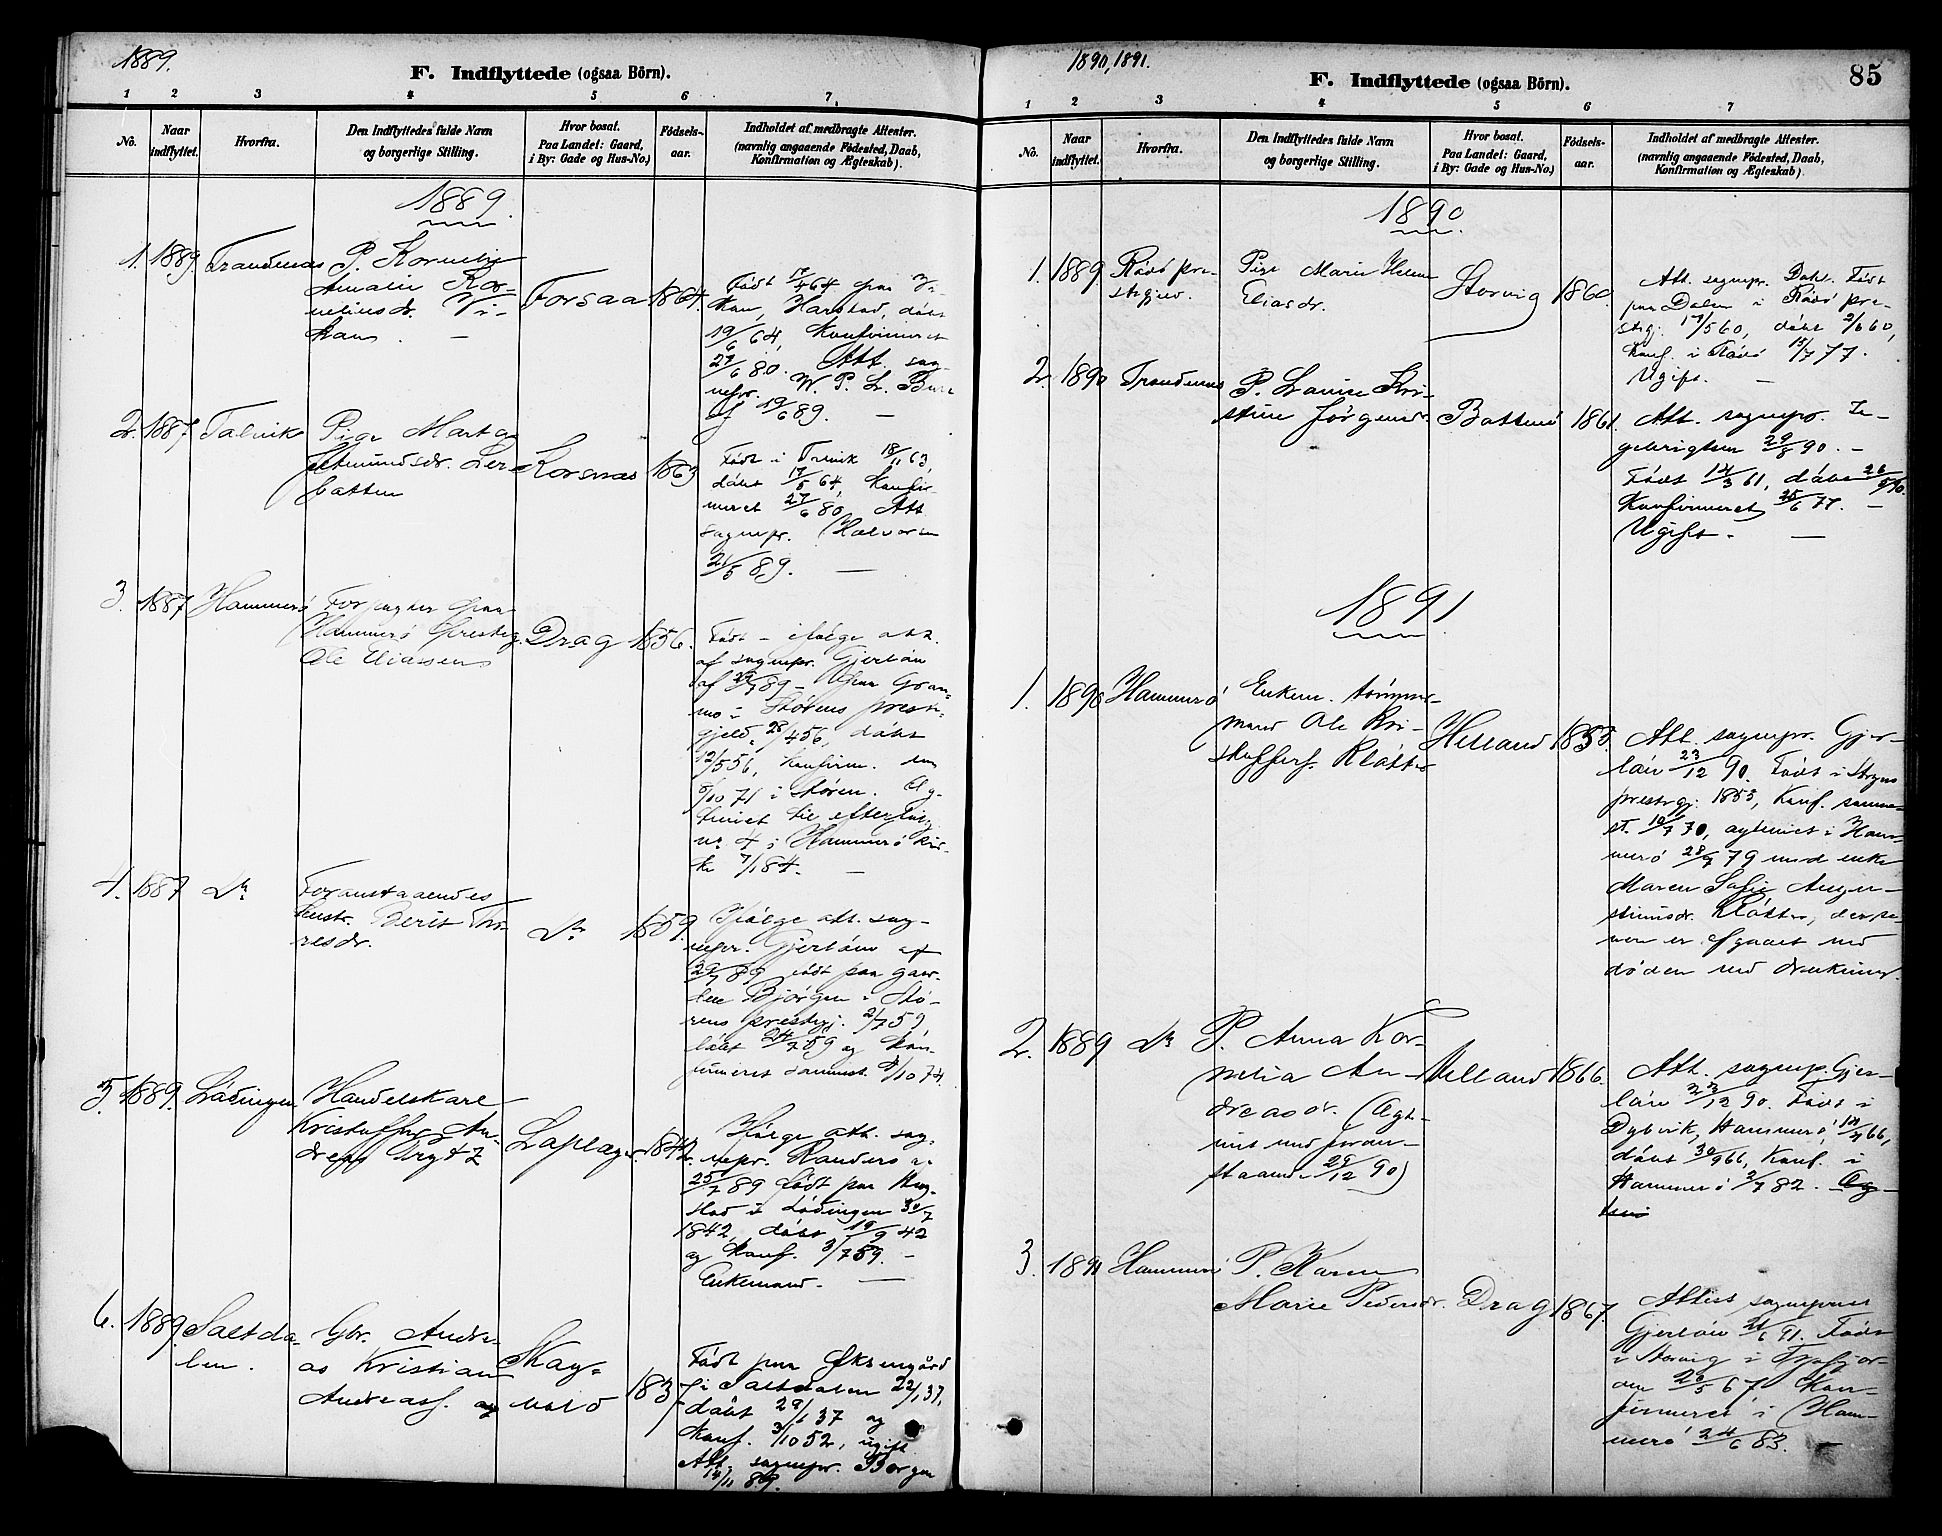 1889.
F. Indflyttede (ogsaa Börn).
1 2 3 4 5 6 7
No.
Naar indflyttet.
Hvorfra.
Den Indflyttedes fulde Navn
og borgerlige Stilling.
Hvor bosat.
Paa Landet: Gaard,
i By: Gade og Hus-No.)
Födsels-
aar.
Indholdet af medbragte Attester.
(navnlig angaaende Födested, Daab,
Konfirmation og Ægteskab).
1889.
1. 1889. Trondenæs
P. Kornelie
Amalie Kor-
neliusdr. Vi-
kan. -
Forsaa 1864.
Født 17/4 64 paa Vi-
kan, Harstad, døbt
19/6 64, Konfirmeret
27/6 80. Att. sog-
nepr. W. P. L.
af 19/6 89. -
2. 1887 Talvik
Pige Marta
Amundsdr. Ler-
batten
Korsnæs 1863
Født i Talvik 18/11 63,
døbt 17/5 64, Konfir-
meret 27/6 80, Att.
sognepr. Halvorsen
21/5 89. -
3. 1887 Hammerø
Forpagter paa
Hammerø Presteg.
Ole Eliassen
Drag 1856.
Født - ifølge att.
af sognepr. Gjerløw
af 29/7 89 - paa Gran-
mo i Størens preste-
gjeld, 28/4 56, døbt
12/5 56, konfirm. den
/10 71 i Støren. Æg-
teviet til efterfølg.
nr. 4 i Hammerø Kir-
ke 7/1 84. -
4. 1887 Dº
Foranstaaendes
hustr. Berit Tho-
resdr.
Dº 1859.
Ifølge att. sog-
nepr. Gjerløw af
29/7 89 født paa gaar-
den Bjørgen i Stø-
rens prestegj. 2/7 59,
døbt 24/7 59 og kon-
firmeret sammest. /10 74.
5. 1889. Lødingen
Handelskarl
Kristoffer An-
dreas
Laplager 1842.
Ifølge att. sog-
nepr. Randers
25/7 89 født paa
stad i Lødingen 30/7
1842, døbt 19/9 42
og konf. 3/7 59. -
Enkemand. -
6. 1889. Saltda-
len.
Gbr. Andre-
as Kristian
Andreass.
Skog-
vold
1837
Født paa Øksengård
i Saltdalen 22/1 37,
døbt 29/1 37 og
konf. 3/10 52, ugift.
Att. sognepr. Borgen
14/11 89.
1890, 1891.
F. Indflyttede (ogsaa Börn).
85
1 2 3 4 5 6 7
No.
Naar indflyttet.
Hvorfra.
Den Indflyttedes fulde Navn
og borgerlige Stilling.
Hvor bosat.
Paa Landet: Gaard,
i By: Gade og Hus-No.)
Födsels-
aar.
Indholdet af medbragte Attester.
(navnlig angaaende Födested, Daab,
Konfirmation og Ægteskab).
1890.
1. 1889 Rødø pre-
stegjeld.
Pige Marie Helene
Eliasdr.
Storvig 1860.
Att. sognepr. Dahl. Født
paa Dalen i Rødø pre-
stegj. 17/5 60, døbt 2/6 60,
Konf. i Rødø 15/7 77.
Ugift. -
2. 1890 Trondenæs
P. Lovise Kri-
stine Jørgensdr.
Botten 1861.
Att. sognepr. In-
gebrigtsen 29/8 90. -
Født 14/3 61, døbt 26/5
Konfirmeret 25/6 77. -
Ugift. -
1891
1. 1890 Hammerø
Enkem. tømmer-
mand Ole Kri-
stoffers. Kløtte
Helland 1853.
Att. sognepr. Gjer-
løw 23/12 90. Født i Stryns
prestegj. 1853, Konf. samme-
st. 10/7 70, ægteviet i Ham-
merø 28/7 79 med enke
Maren Sofie Augu-
stinusdr. Kløtte, der se-
nere er afgaaet ved
døden ved drukning.
2. 1889 Dº
P. Anna Kor-
nelia An-
dreasdr. (Ægt-
viet med foran-
staaende 29/12 90)
Helland 1866.
Att. sognep. Gjer-
løw 23/12 90. Født i
Dybvik, Hammerø, 14/7 66,
døbt 30/9 66, Konf. i
Hammerø 2/7 82.
3. 1891 Hammerø
P. Karen
Marie Pedersdr.
Drag 1867.
Attest sognepræst
Gjerløw 21/6 91. Født
i Storvig i Tysfjor-
den 20/5 67 Kon-
firmeret i Ham-
merø 24/6 83. -